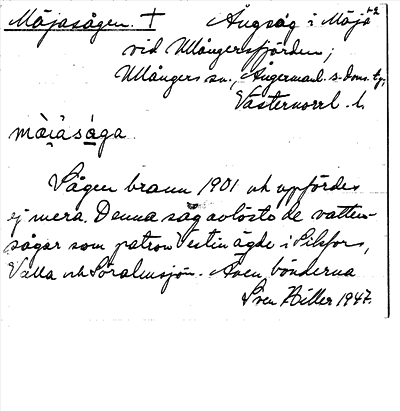 Måjasågen. † Ångsåg i Måja
vid Ullångersfjärden;
Ullångers sn., Ångermanl. s. doms. tg,
Västernorrl. l.
Sågen brann 1901 och uppfördes
ej mera. Denna såg avlöste de vatten-
sågar som patron Vestin ägde i
Valla och Söralmsjön. Även bönderna
Sven Hiller 1947.